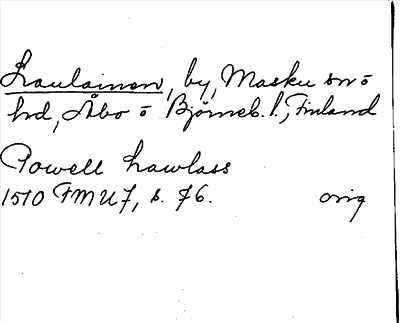 Laulainen, by, Masku sn o
hd, Åbo o Björneb. l., Finland
Powell Lawlass
1510 FMU 7, s. 76. orig